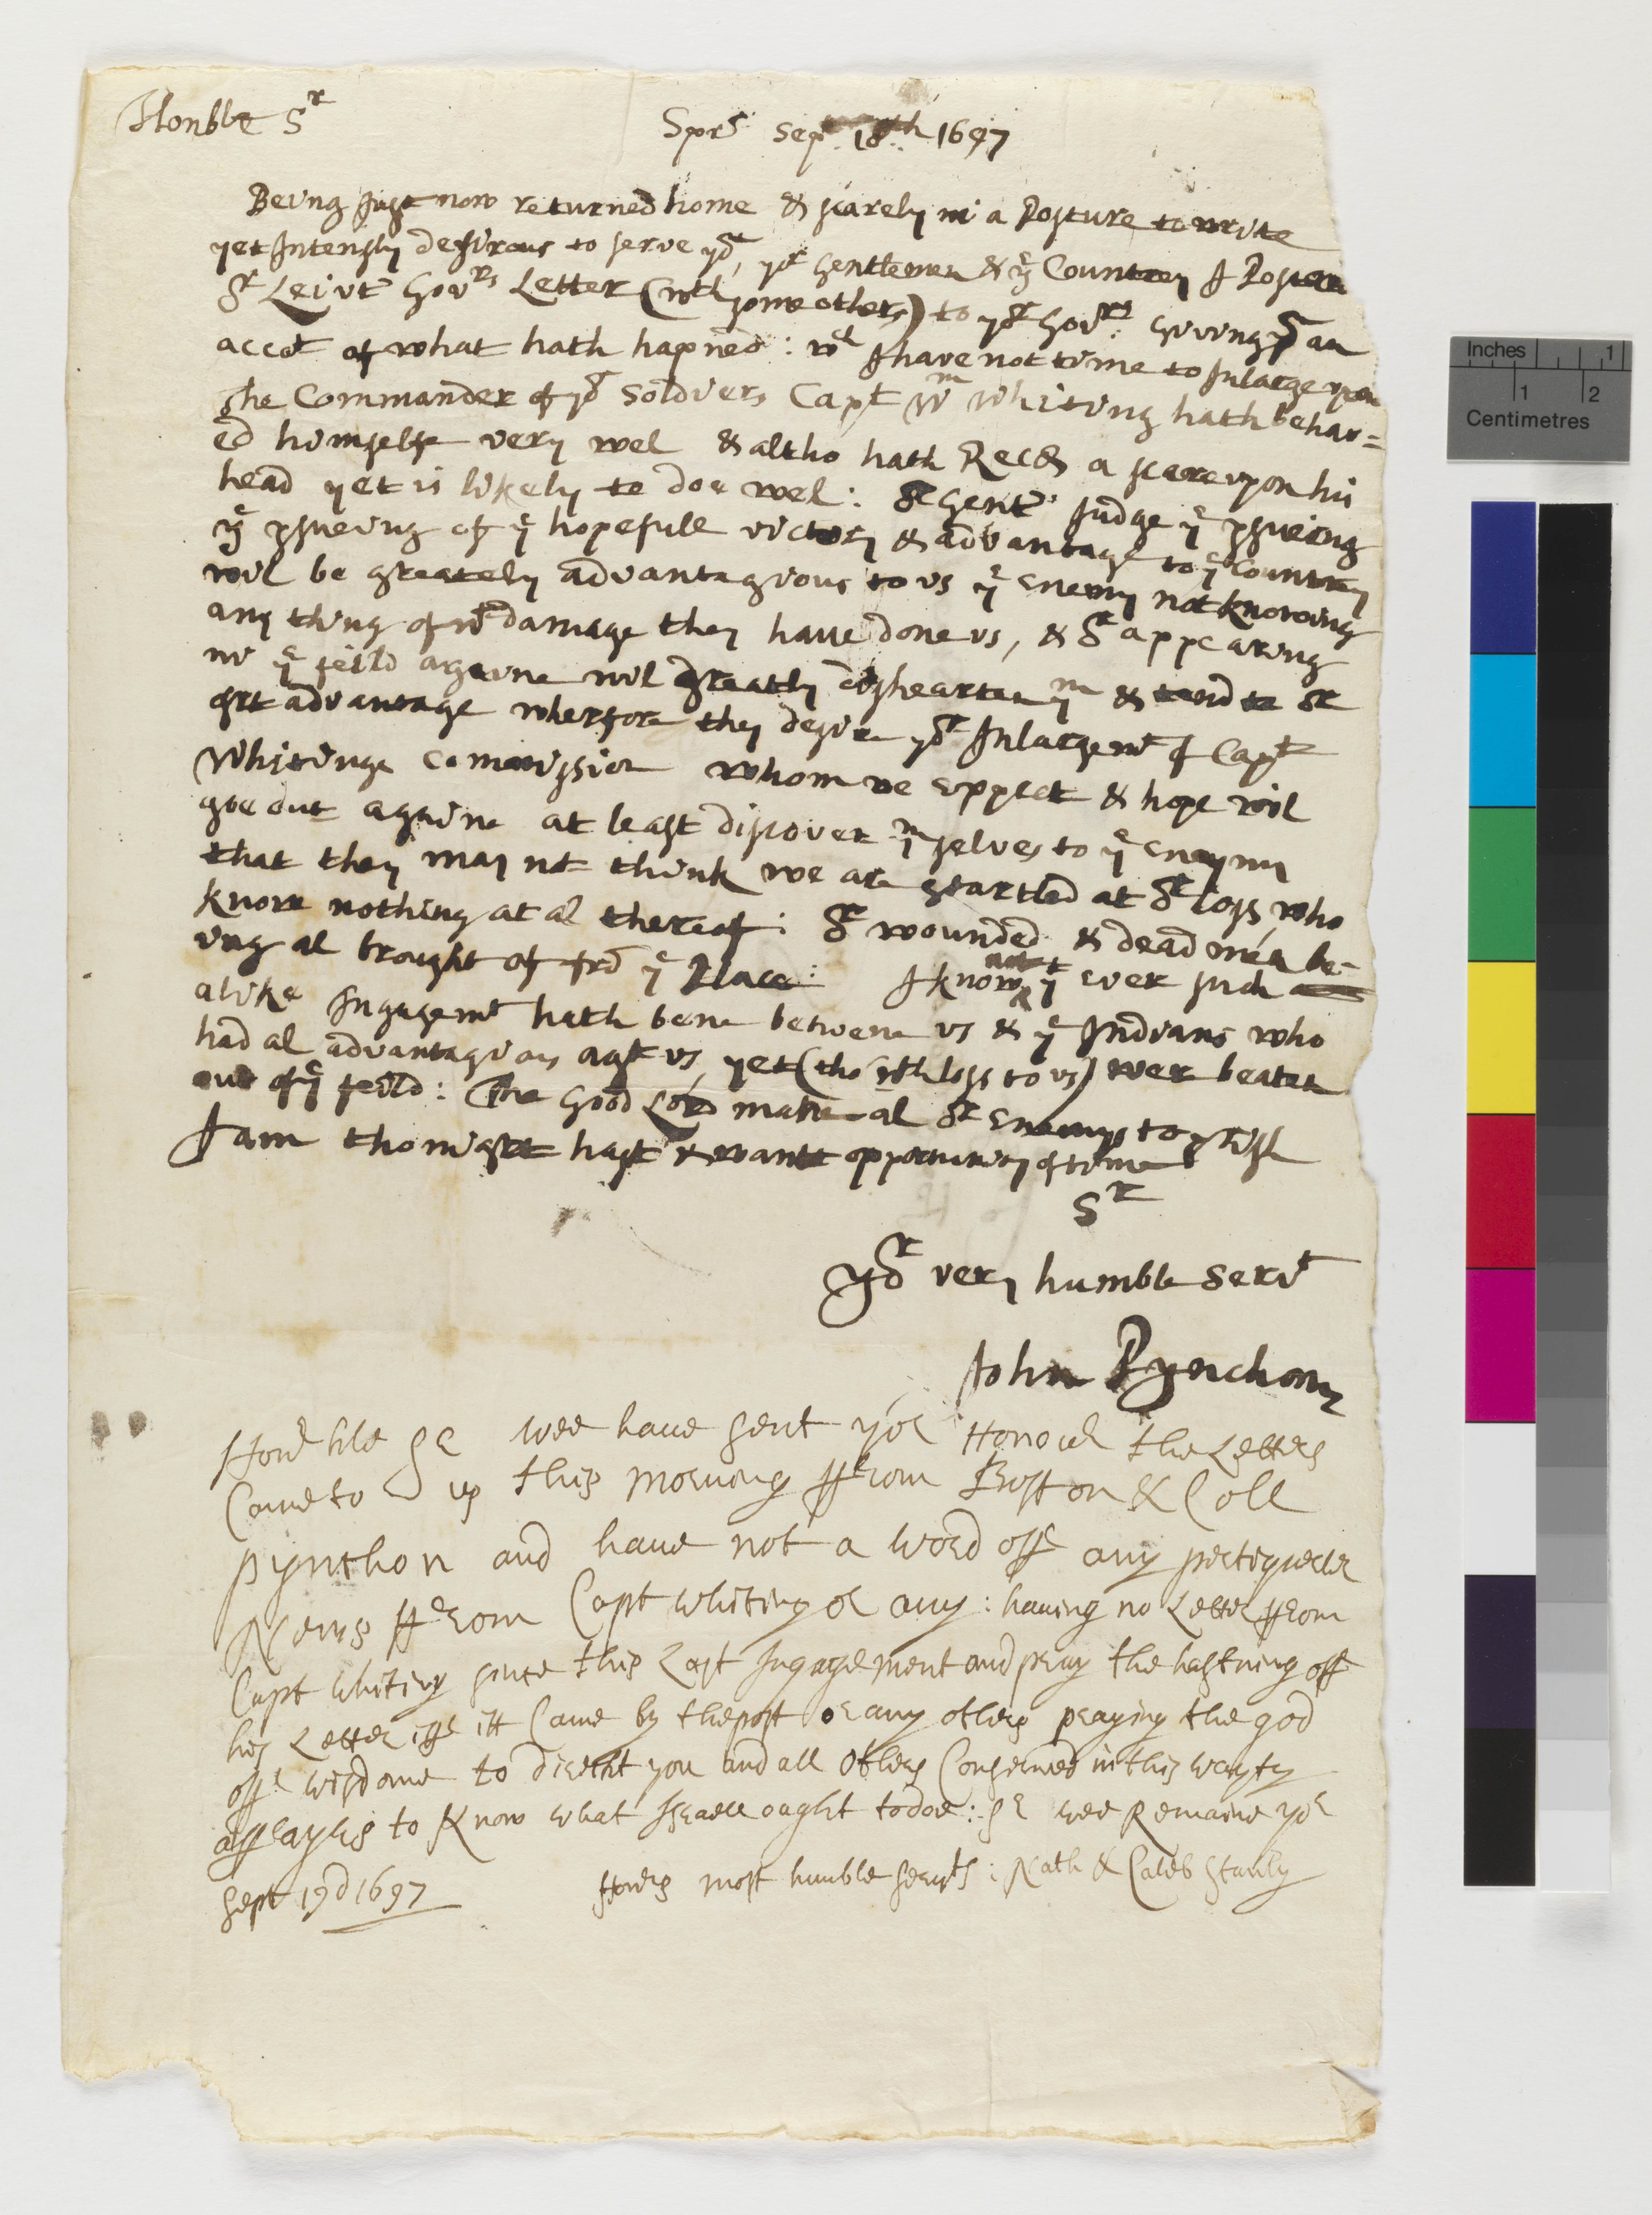 Honble Sr
Sprf Sept 18th 1697
Being Just now returned home & scarely in a Posture to write
yet Intensly desirous to serve yor, yor Gentlemen & ye Countrey I Post or
Sr Leivt Govrs Letter (wth some others) to yor Govr: Giving an
accot of what hath hapned: wch I have not time to Inlarge upon
The Commander of yor Soldiers Capt Wm Whiting hath behav=
ed himselfe very wel & altho hath Recd a scare upon his
head yet is likely to doe wel: or Gent: Judge ye psueing
ye psueing of ye hopefull victory & advantage to ye Countrey
wil be greately advantagious to us ye Enemy not knowing
any thing of wt damage they have done us, & or appearing
in ye feild againe wil greatly dishearten ym & tend to or
grt advantage wherfore they desire yor Inlargemt of Capt
Whitings Commission whom we expect & hope wil
goe out againe at least discover ymselves to ye Enemy
that they may not think we are startled at or loss, who
know nothing at al thereof: or wounded & dead men be-
ing al brought of fro ye Place: I know not yt ever such
alike Ingagemt hath bene betwene us & ye Indians who
had al advantagious agst us, yet (tho wth loss to us) wer beaten
out of ye feild: The Good Lord make al or Enemys to perish
I am tho in grt hast & want opportunity of time
Sr
Yor very humble Servt
John Pynchon
Honrble Sr wee haue sent yor Honour the Letters
Came to us this morning ffrom Boston & Coll
pynchon and haue not a word off any pertiqueler
News ffrom Capt Whiting or any: hauing no Letter ffrom
Capt Whiting since this Last Ingagement and pray the hastning off
his Letter iff itt Came by the post or any others praying the god
off wisdome to direckt you and all others Conserned in this wayty
affrayes to Know what Israell ought to doe: Sr wee Remaine yor
Honrs most humble seruts: Nath & Caleb Stanly
Sept 19d 1697